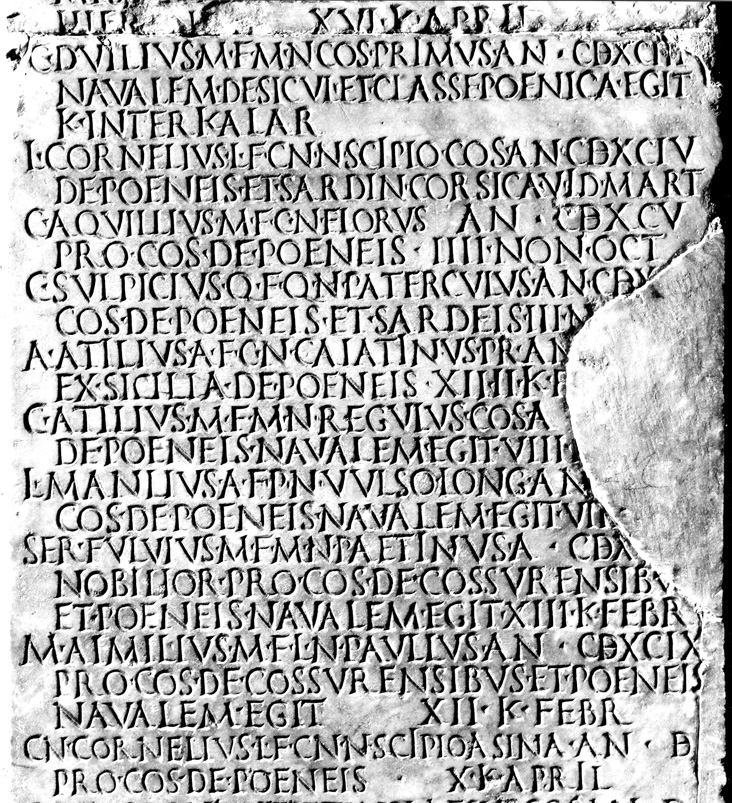 XVI·K·APRIL
C·DVILIVS·M·F·M·N·COS·PRIMVS·AN·CDXCIII
NAVALEM·DE·SICVL·ET·CLASSE·POENICA·EGIT
K·INTERKALAR
L·CORNELIVS·L·F·CN·N·SCIPIO·COS·AN·CDXCIV
DE·POENEIS·ET·SARDIN·CORSICA·V·ID·MART
C·AQVILLIVS·M·F·C·N·FLORVS AN·CDXCV
PRO·COS·DE·POENEIS·IIII·NON·OCT
C·SVLPICIVS·Q·F·Q·N·PATERCVLVS·AN·CDX
COS·DE·POENEIS·ET·SARDEIS·III·N
A·ATILIVS·A·F·C·N·CAIATINVS·PR·AN
EX·SICILIA·DE·POENEIS·XIIII·K·F
C·ATILIVS·M·F·M·N·REGVLVS·COS·A
DE·POENEIS·NAVALEM·EGIT·VIII
L·MANLIVS·A·F·P·N·VVLSO·LONG·AN
COS·DE·POENEIS·NAVALEM·EGIT·VI
SER·FVLVIVS·M·F·M·N·PAETINVS·A·CDX
NOBILIOR·PRO·COS·DE·COSSVRENSIBV
ET·POENEIS·NAVALEM·EGIT·XIII·K·FEBR
M·AIMILIVS·M·F·L·N·PAVLLVS·AN·CDXCIX
PRO·COS·DE·COSSVRENSIBVS·ET·POENEIS
NAVALEM·EGIT XII·K·FEBR
CN·CORNELIVS·L·F·CN·N·SCIPIO·ASINA·AN·D
PRO·COS·DE·POENEIS·X·K·APRIL